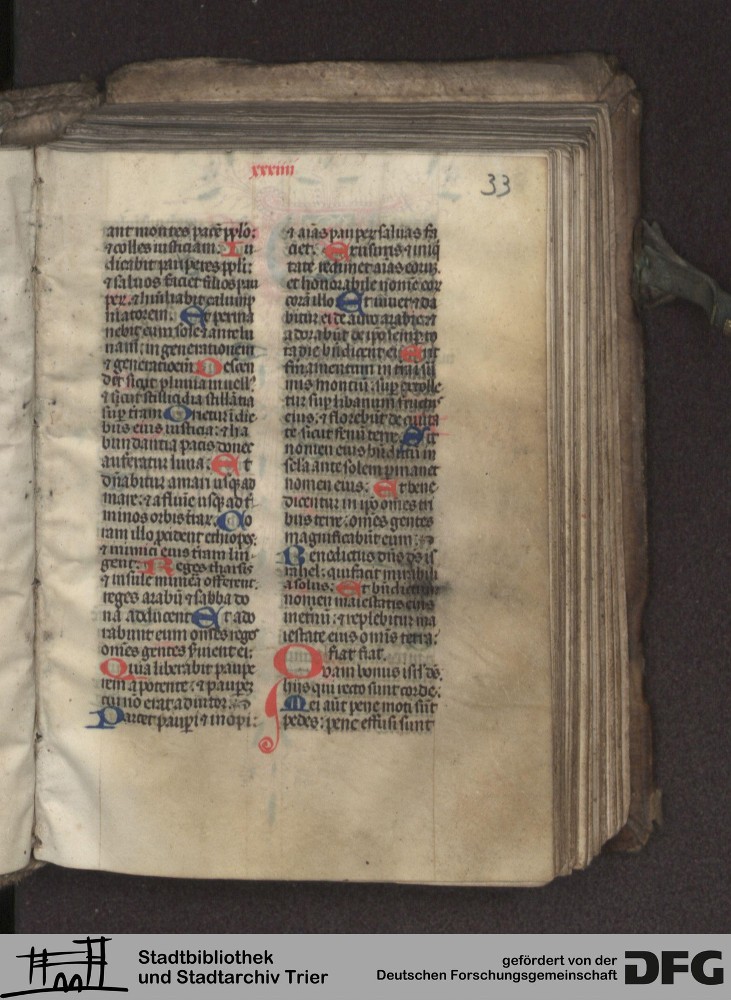 xxxiiii
33
ant montes pacē pplo:
⁊ colles iusticiam. Iu
dicabit pauperes ppli:
⁊ saluos faciet filios pau
per. ⁊ humiliabit calump
niatorem. Et perma
nebit cum sole ⁊ ante lu
nam: in generationem
⁊ generationem Descen
det sicut pluuia in uell
⁊ sicut stillicidia stillātia
sup terram Orietur ī die
bus eius iusticia: ⁊ ha
bundantia pacis donec
auferatur luna: Et
dn̄abitur a mari usq̨ ad
mare: ⁊ a flumīe usq̨ ad t̄
minos orbis terrar. Co
ram illo pcident ethiopes:
⁊ inimici eius terram lin
gent. Reges tharsis
⁊ insule munera offerent:
reges arabū ⁊ sabba do
na adducent Et ado
rabunt eum omēs reges
omēs gentes s̄uient ei:
Quia liberabit paupe
rem a potente: ⁊ pauper
cui nō erat adiutor.
Parcet paupi ⁊ inopi:
⁊ aīas pauper saluas fa
ciet. Ex usuris ⁊ iniq
tate redimet aīas eorum:
et honorabile nomē eor
corā illo Et uiuet ⁊ da
bitur ei de auro arabie: ⁊
adorabūt de ipo semp to
ta die bn̄dicent ei Erit
firmamentum in terra in sū
mis montiū: sup extolle
tur sup libanum fructus
eius: ⁊ florebūt de ciuita
te sicut fenū terre. Sit
nomen eius bn̄dictū in
sc̄la ante solem pmanet
nomen eius: Et bene
dicentur in ipo omēs tri
bus terre: omēs gentes
magnificabūt eum:
Benedictus dn̄s ds is
rahel: qui facit mirabili
a solus: Et bn̄dictum
nomen maiestatis eius
in etnū: ⁊ replebitur ma
iestate eius omīs terra:
fiat fiat.
Quam bonus isrl ds.
hijs qui recto sunt corde:
Mei aūt pene moti sūt
pedes: pene effusi sunt
Stadtbibliothek
und Stadtarchiv Trier
gefördert von der
Deutschen Forschungsgemeinschaft
DFG